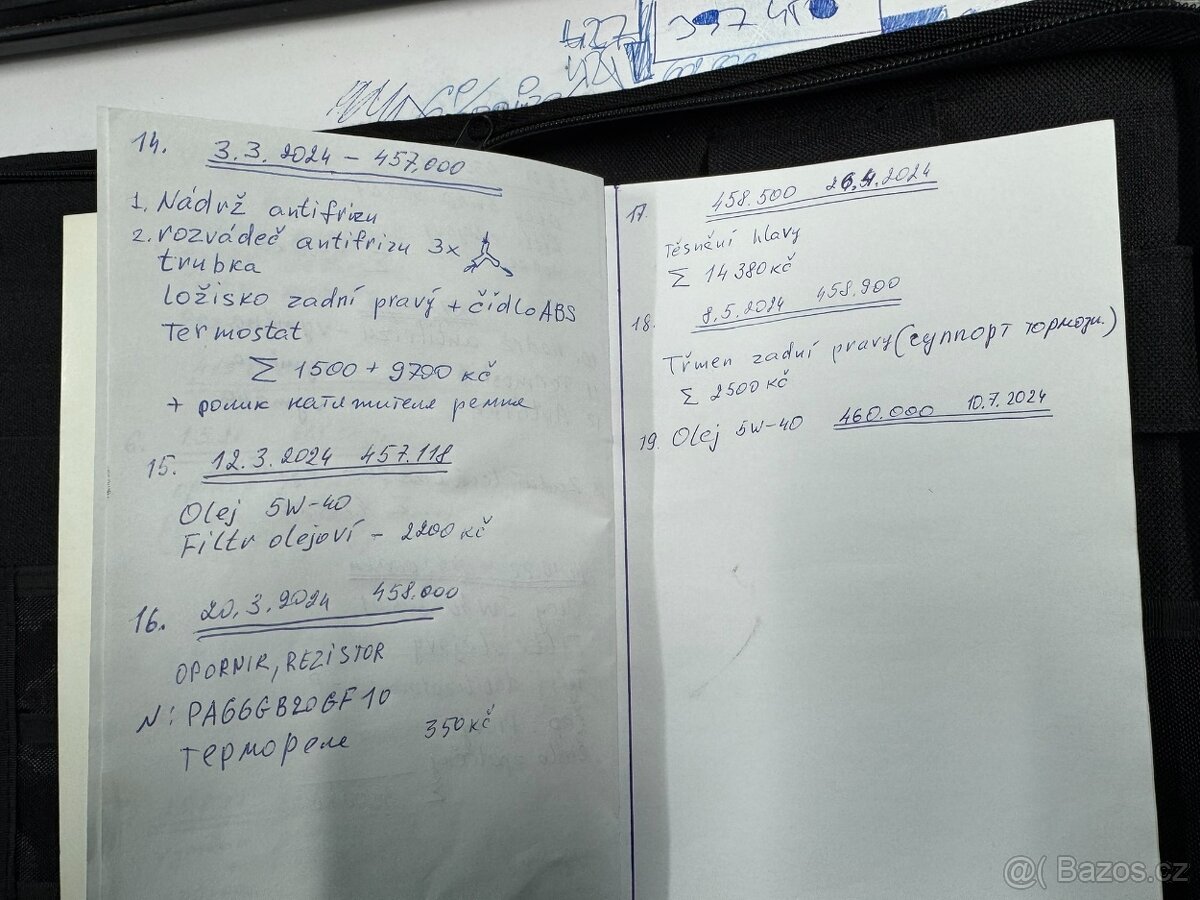 427 397 45
14. 3.3.2024 - 457.000
1. Nádrž antifrizu
2. rozváděč antifrizu 3x
trubka
ložisko zadní pravý + čídlo ABS
Termostat
Σ 1500 + 9700 kč
+ ролик натяжителя ремня
15. 12.3.2024 457.118
Olej 5W-40
Filtr olejoví - 2200 kč
16. 20.3.2024 458.000
OPORNIK, REZISTOR
N: PA66GB20GF10
термореле 350 kč
17. 458.500 26.4.2024
Těsnění hlavy
Σ 14 380 kč
18. 8.5.2024 458.900
Třmen zadní pravy (суппорт тормозн.)
Σ 2500 kč
19. Olej 5W-40 460.000 10.7.2024
@( Bazos.cz